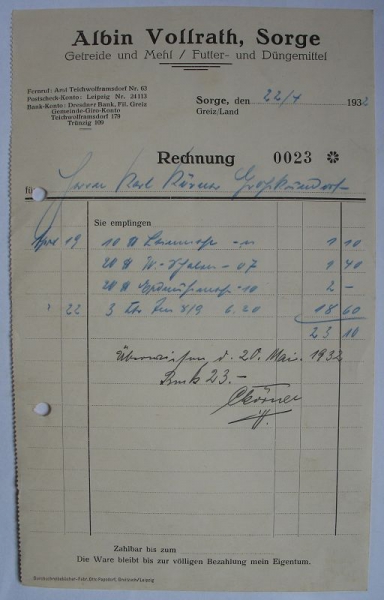 Albin Vollrath, Sorge
Getreide und Mehl / Futter- und Düngemittel
Fernruf: Amt Teichwolframsdorf Nr. 62
Postscheck-Konto: Leipzig Nr. 24113
Bank-Konto: Dresdner Bank, Fil. Greiz
Gemeinde-Giro-Konto
Teichwolframsdorf 178
Trünzig 100
Sorge, den 22/4 1932
Greiz/Land
Rechnung 0023
für Herrn Karl Körner Großkundorf
Sie empfingen
April 19 10 - 11 1 10
20 W-Schalen - 07 1 40
20 Erdnuss - 10 2 -
" 22 3 6.20 18 60
23 10
Überwiesen d. 20. Mai. 1932
Rmk 23.-
Körner
Zahlbar bis zum
Die Ware bleibt bis zur völligen Bezahlung mein Eigentum.